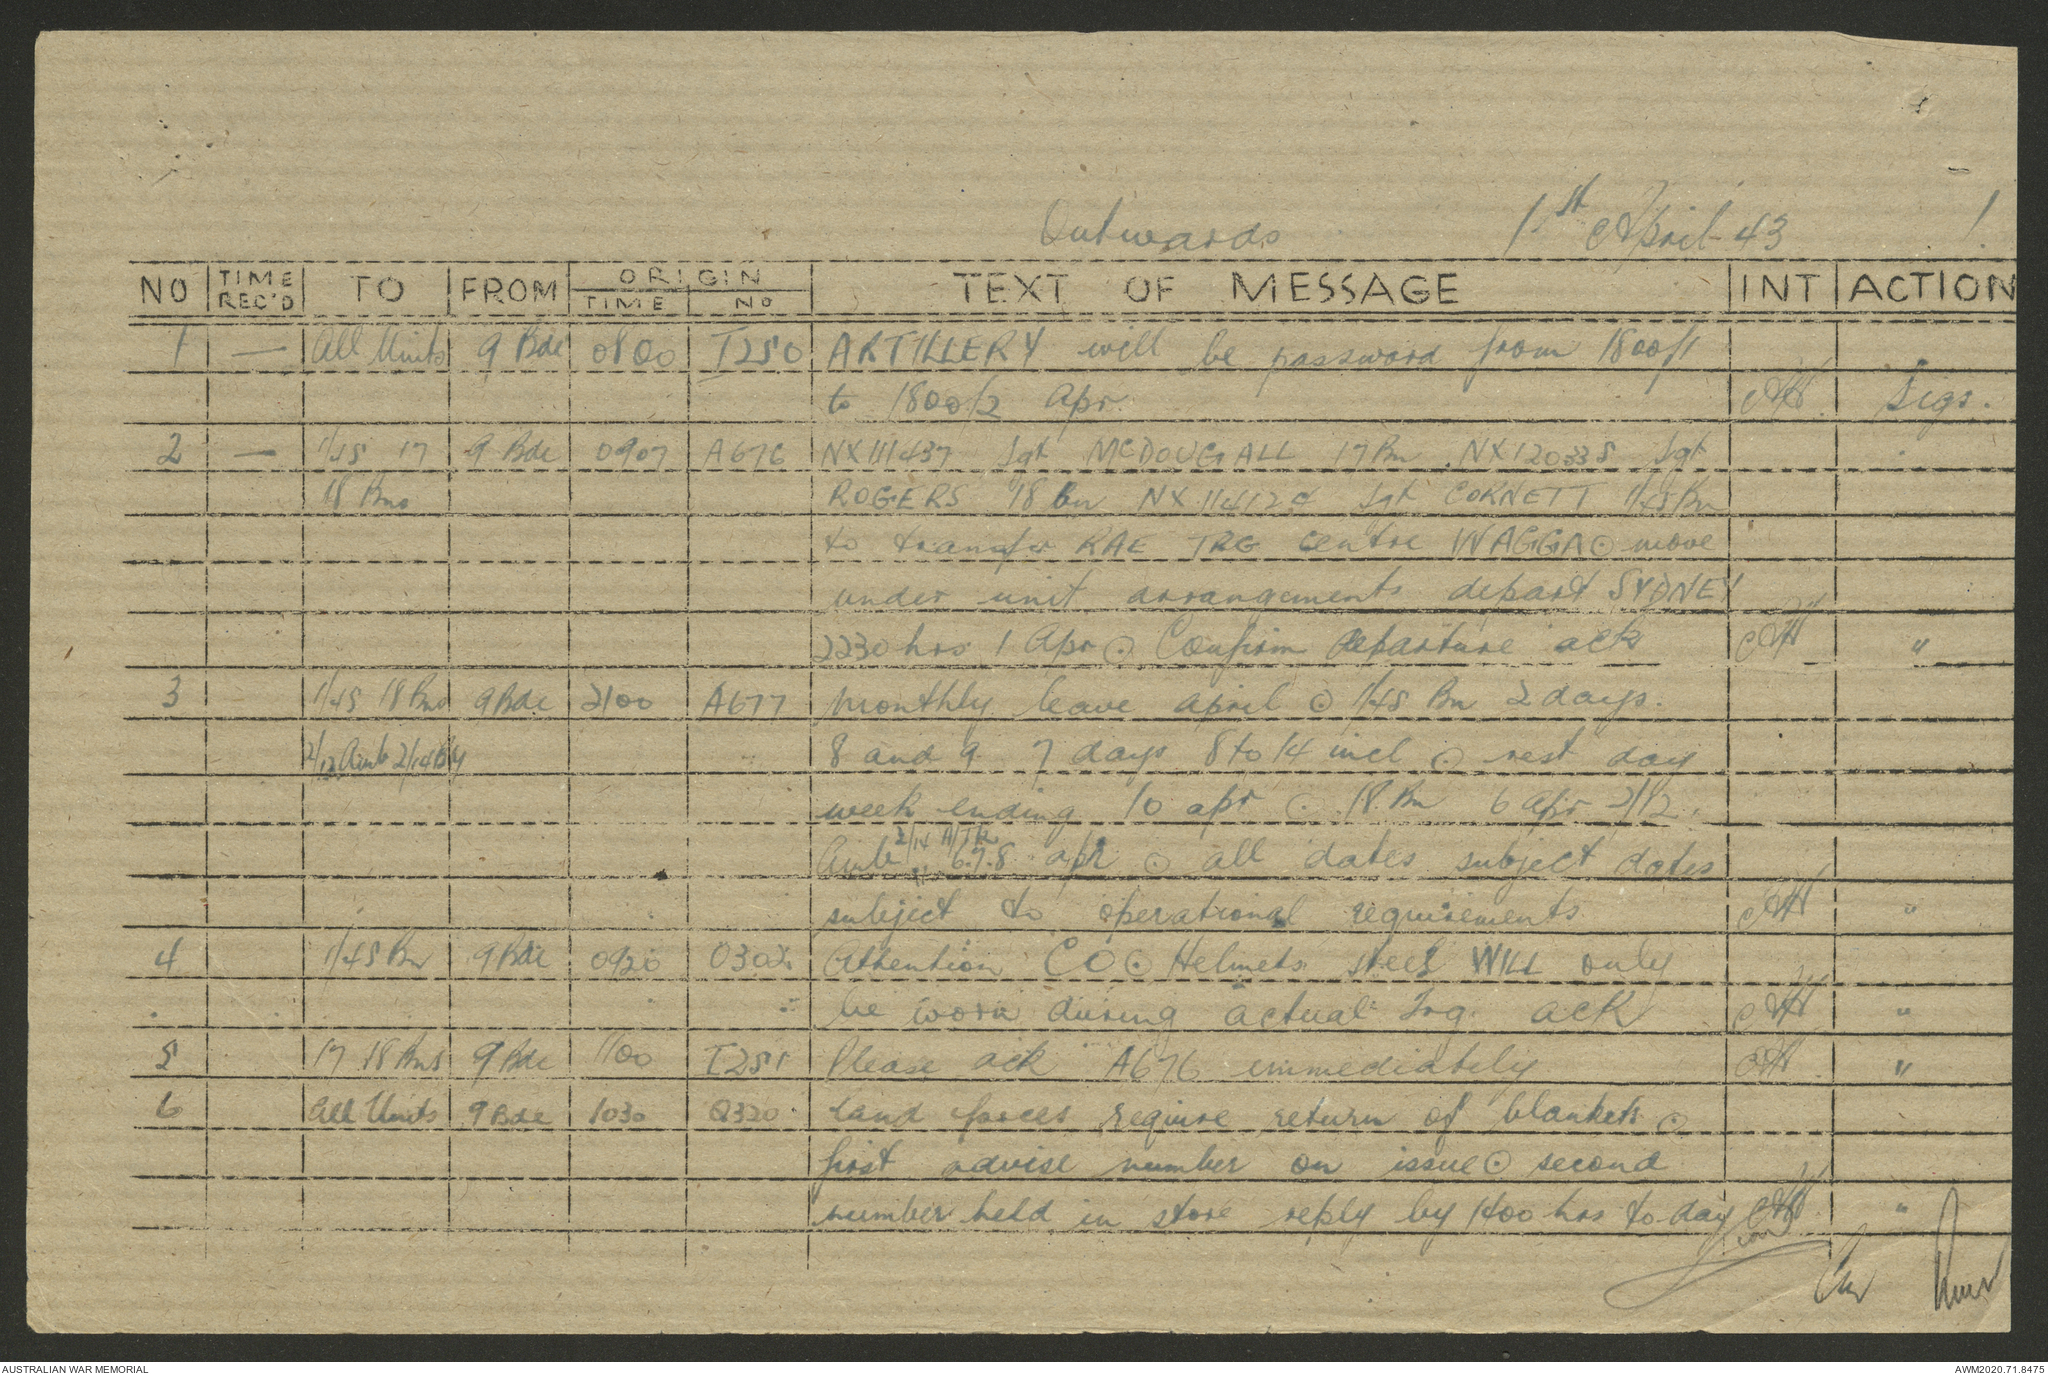 Outwards 1.st April 43 1
NO TIME REC'D TO FROM ORIGIN TIME NO TEXT OF MESSAGE INT ACTION
1 — All Units 9 Bde 0800 I250 ARTILLERY will be password from 1800/1
to 1800/2 Apr. Sigs.
2 — 1/45 17 9 Bde 0907 A676 NX111437 Sgt MCDOUGALL 17 Bn NX120335 Sgt
18 Bns ROGERS 18 bn Sgt CORNETT 1/45 Bn
to transfer RAE TRG centre WAGGA ⊙ move
under unit arrangements depart SYDNEY
2230 hrs 1 Apr ⊙ Confirm departure ack "
3 1/45 18 Bns 9 Bde 2100 A677 Monthly leave april ⊙ 1/45 Bn 2 days.
2/12 Amb 2/14 Bty 8 and 9 7 days 8 to 14 incl ⊙ rest day
week ending 10 apr ⊙ 18 Bn 6 apr 2/12
2/14 A/TK
Amb 6.7.8 apr ⊙ all dates subject dates
subject to operational requirements "
4 1/45 Bn 9 Bde 0920 O302 Attention CO ⊙ Helmets steel WILL only
be worn during actual Trg. ack "
5 17 18 Bns 9 Bde 1100 I251 Please ack A676 immediately "
6 All Units 9 Bde 1030 Q320 Land forces require return of blankets ⊙
first advise number on issue ⊙ second
number held in store reply by 1400 hrs to-day "
AUSTRALIAN WAR MEMORIAL AWM2020.71.8475